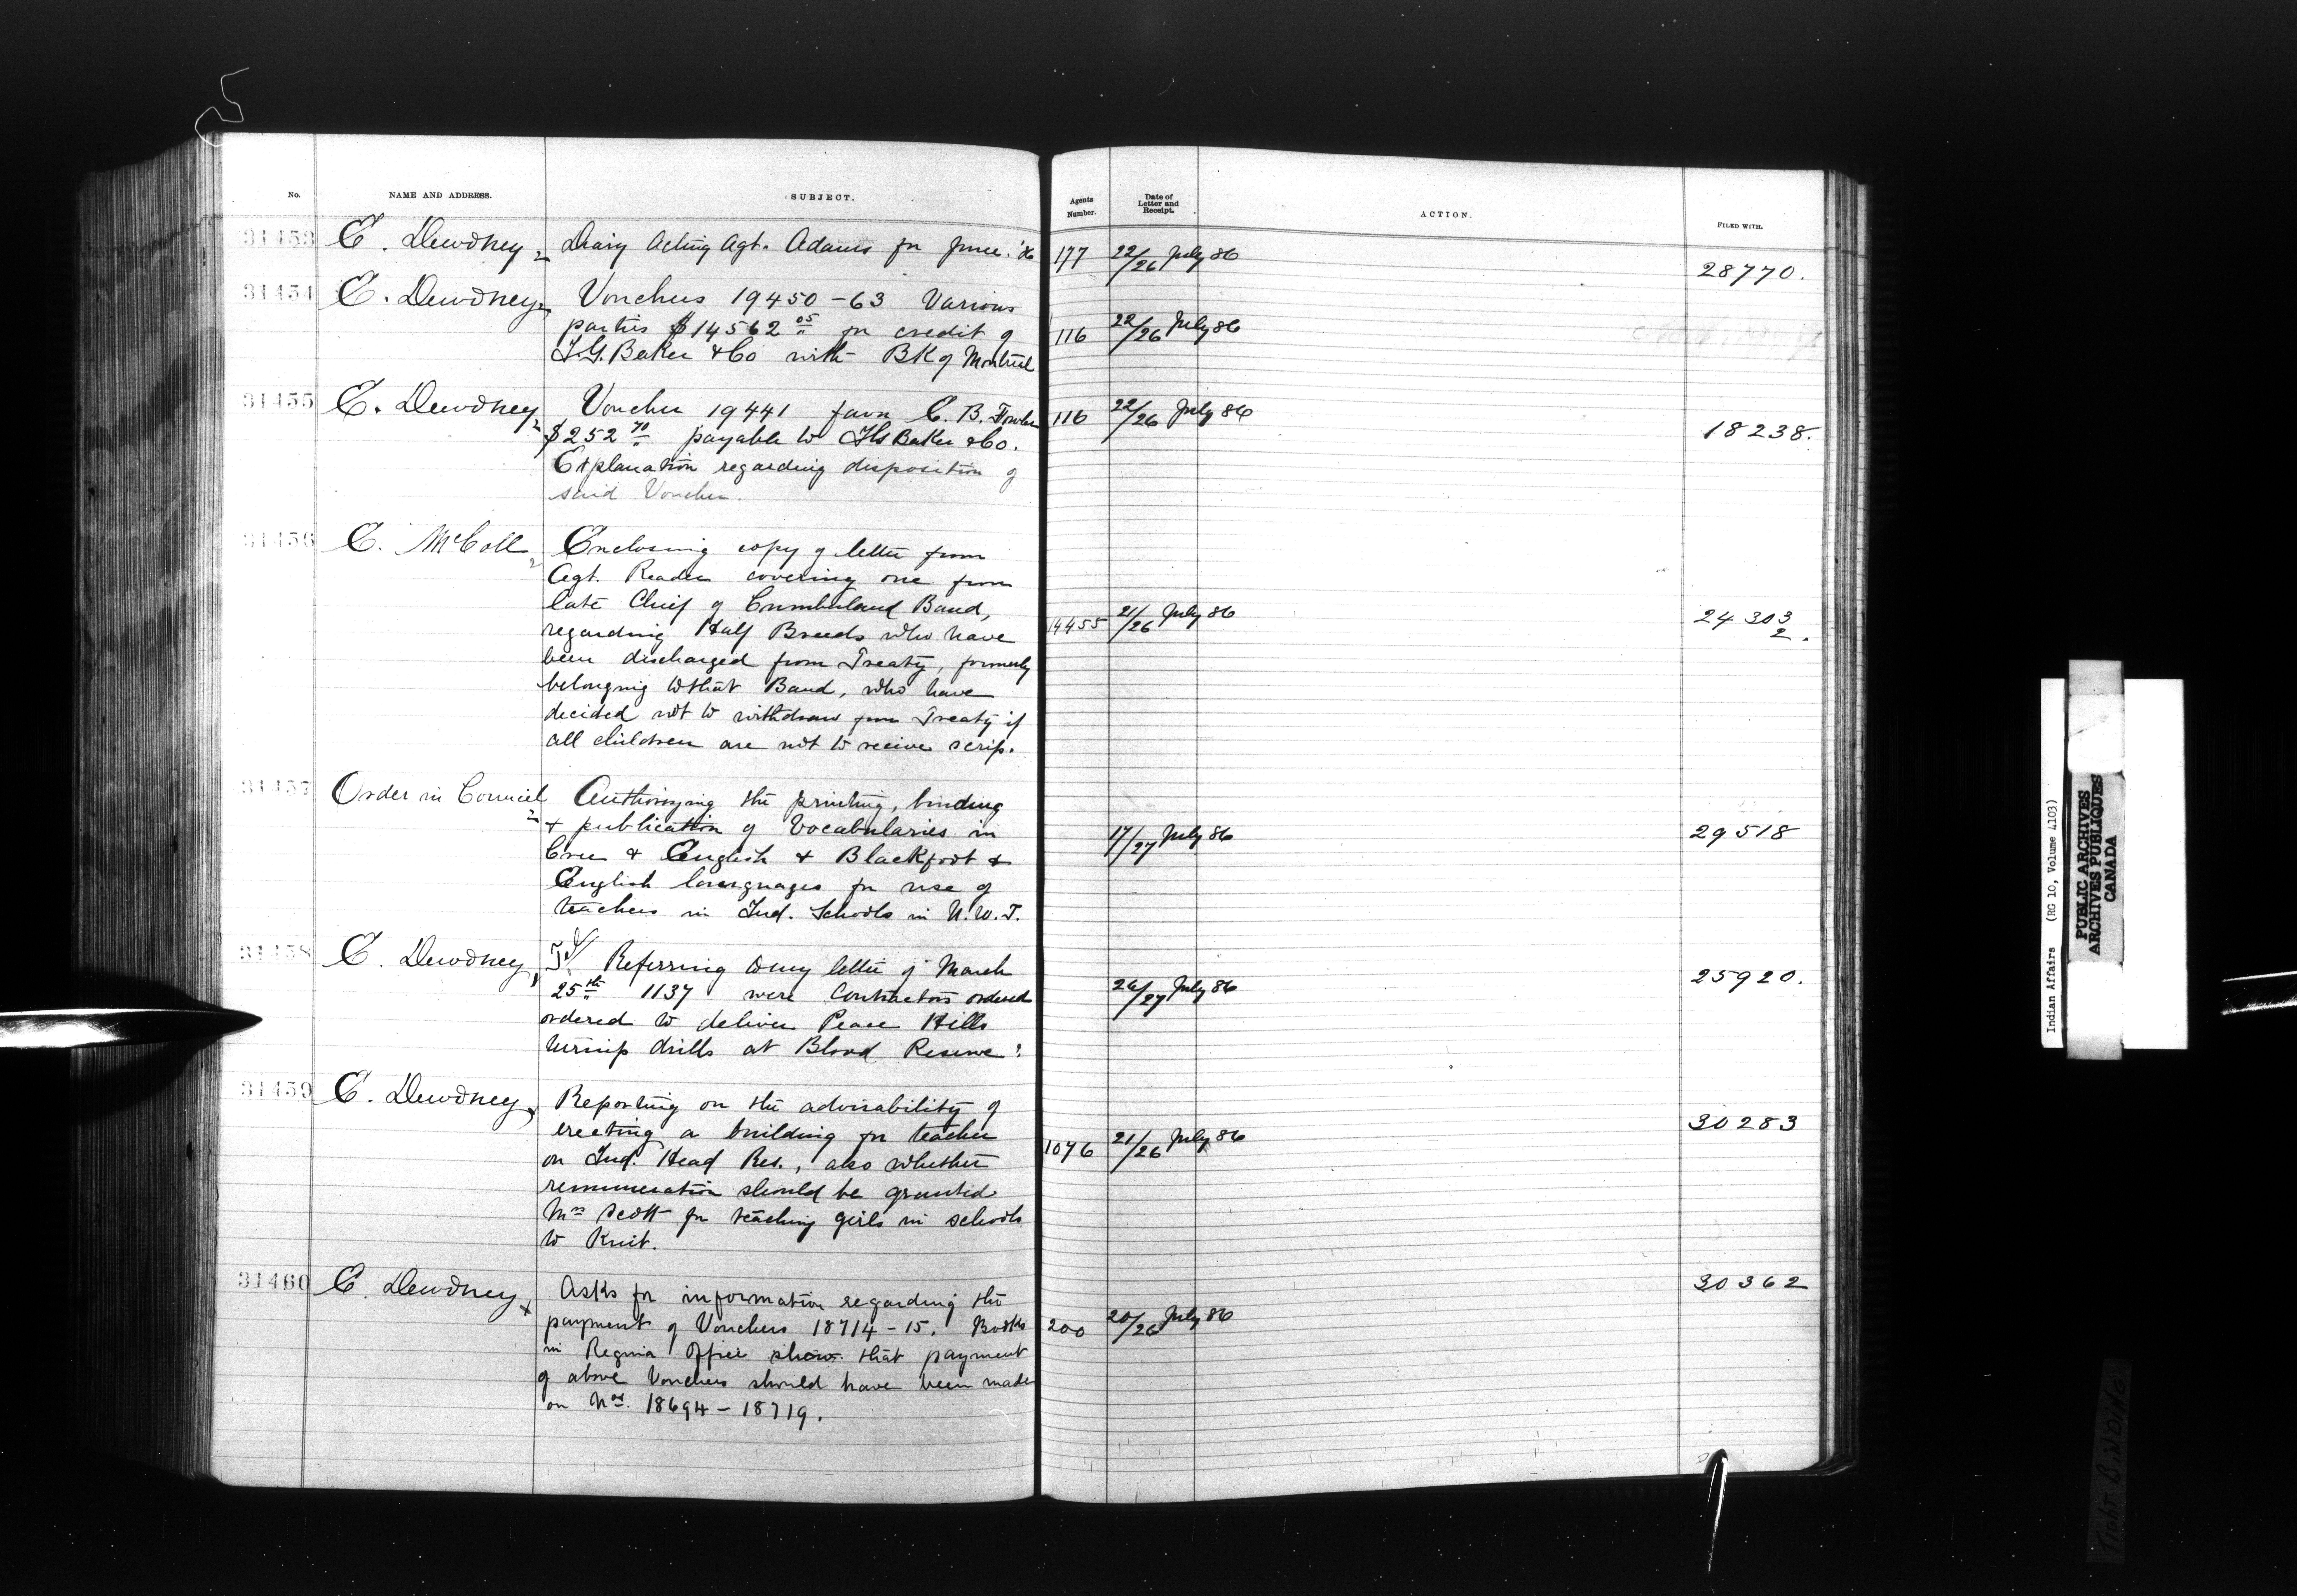 No. NAME AND ADDRESS. SUBJECT. Agents Number. Date of Letter and Receipt. ACTION. FILED WITH.
31453 E. Dewdney Diary Acting Agt. Adams for June '86 177 22/26 July 86 28770.
31454 E. Dewdney Vouchers 19450-63 Various
parties $14562 05 for credit of 116 22/26 July 86
I.G. Baker & Co with BK of Montreal
31455 E. Dewdney Voucher 19441 favor C. B. Fowler 116 22/26 July 86
$252 70 payable to I G Baker & Co. 18238.
Explanation regarding disposition of
said Voucher.
31456 E. McColl Enclosing copy of letter from
Agt. Reader covering one from
late Chief of Cumberland Band, 21/26 July 86 24303
regarding Half Breeds who have 14455 2.
been discharged from Treaty, formerly
belonging to that Band, who have
decided not to withdraw from Treaty if
all children are not to receive scrip.
31457 Order in Council Authorizing the printing, binding
& publication of Vocabularies in 17/27 July 86 29518
Cree & English & Blackfoot &
English languages for use of
teachers in Ind. Schools in N.W.T.
31458 E. Dewdney Tel Referring to my letter of March 25920.
25th 1137 were Contractors ordered 26/27 July 86
ordered to deliver Peace Hills
turnip drills at Blood Reserve?
31459 E. Dewdney Reporting on the advisability of
erecting a building for teacher 30283
on Ind. Head Res., also whether 1076 21/26 July 86
remuneration should be granted
Mrs Scott for teaching girls in schools
to Knit.
31460 E. Dewdney Asks for information regarding the 30362
payment of Vouchers 18714-15. Books 200 20/26 July 86
in Regina Office show that payment
of above Vouchers should have been made
on Nos. 18694-18719.
Indian Affairs (RG 10, Volume 4103)
PUBLIC ARCHIVES
ARCHIVES PUBLIQUES
CANADA
Tight BiNDiNG